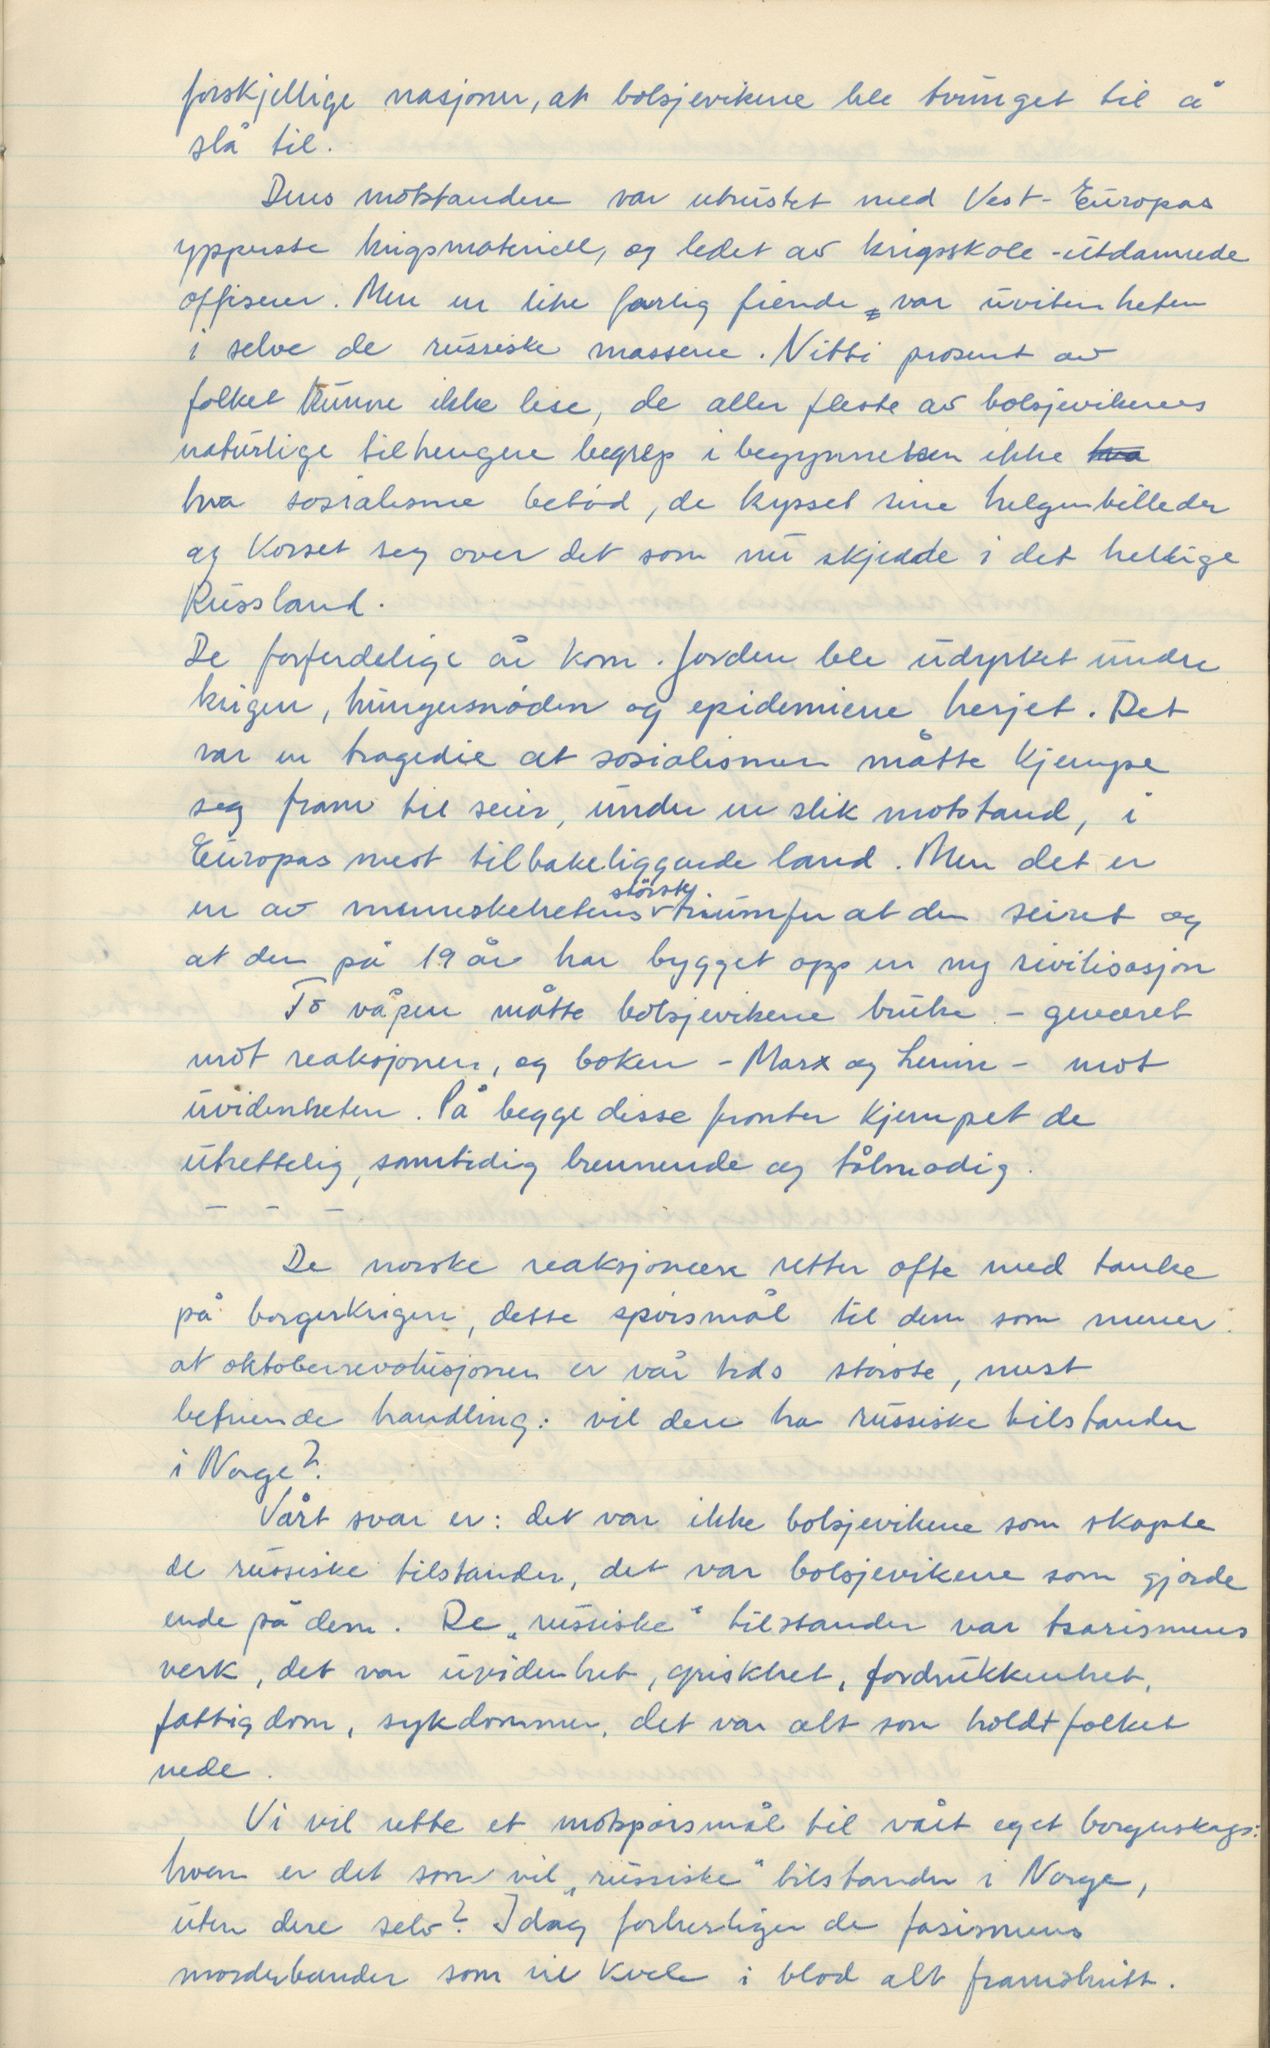 forskjellige nasjoner, at bolsjevikene ble tvunget til å
slå til.
Deres motstandere var utrustet med Vest-Europas
ypperste krigsmateriell, og ledet av krigsskole-utdannede
offiserer. Men en like farlig fiende var uvitenheten
i selve de russiske massene. Nitti prosent av
folket kunne ikke lese, de aller fleste av bolsjevikenes
naturlige tilhengere begrep i begynnelsen ikke hva
hva sosialisme betød, de kysset sine helgenbilleder
og korset seg over det som nu skjedde i det hellige
Russland.
De forferdelige år kom. Jorden ble udyrket undre
krigen, hungersnøden og epidemiene herjet. Det
var en tragedie at sosialismen måtte kjempe
seg fram til seier, under en slik motstand, i
Europas mest tilbakeliggende land. Men det er
en av menneskehetens største triumfer at den seiret og
at den på 19 år har bygget opp en ny sivilisasjon
To våpen måtte bolsjevikene bruke - geværet
mot reaksjonen, og boken - Marx og Lenin - mot
uvidenheten. På begge disse fronter kjempet de
utrettelig, samtidig brennende og tålmodig.
— — —
De norske reaksjonære retter ofte med tanke
på borgerkrigen, dette spørsmål til dem som mener
at oktoberrevolusjonen er vår tids største, mest
befriende handling: vil dere ha russiske tilstander
i Norge?
Vårt svar er: det var ikke bolsjevikene som skapte
de russiske tilstander, det var bolsjevikene som gjorde
ende på dem. De „russiske“ tilstander var tsarismens
verk, det var uvidenhet, griskhet, fordrukkenhet,
fattigdom, sykdommer, det var alt som holdt folket
nede.
Vi vil rette et motspørsmål til vårt eget borgerskap:
hvem er det som vil „russiske“ tilstander i Norge,
uten dere selv? Idag forherliger de fasismens
morderbander som vil kvele i blod alt framskritt.